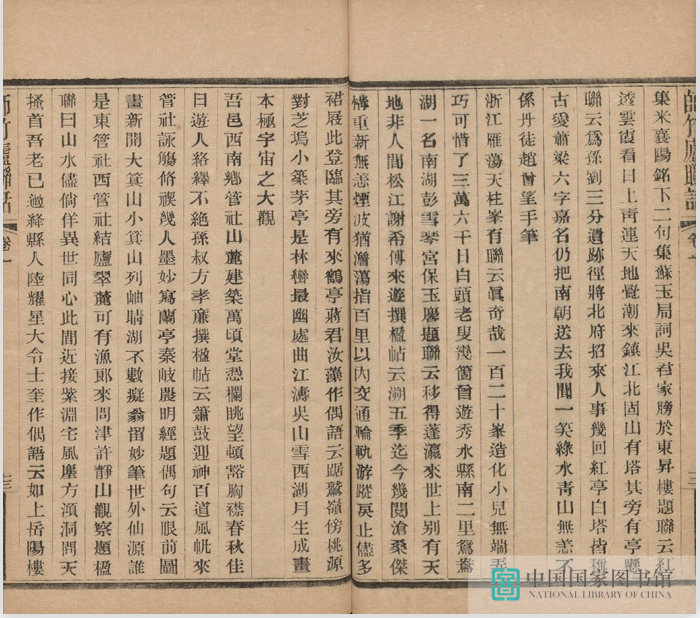 師竹廬聯話 卷一
集米襄陽銘下二句集蘇玉局詞吳君家牓於東昇樓題聯云紅
透雲霞看日上靑連天地覺潮來鎭江北固山有塔其旁有亭懸
聯云爲孫劉三分遺跡徑將北府招來人事幾回紅亭白塔皆
古愛蕭梁六字嘉名仍把南朝送去我聞一笑綠水靑山無恙不
係丹徒趙曾望手筆
浙江雁蕩天柱峯有聯云眞奇哉一百二十峯造化小兒無端弄
巧可惜了三萬六千日白頭老叟幾箇曾遊秀水縣南二里鴛鴦
湖一名南湖彭雪琴宮保玉麐題聯云移得蓬瀛來世上別有天
地非人間松江謝希傅來遊撰楹帖云溯五季迄今幾閱滄桑傑
構重新無恙煙波猶澹蕩指百里以內交通輪軌游蹤戾止儘多
裙屐此登臨其旁有來鶴亭蔣君汝藻作偶語云踞鷲嶺傍桃源
對芝塢小築茅亭是林巒最幽處曲江濤吳山雪西湖月生成畫
本極宇宙之大觀
吾邑西南鄕管社山麓建築萬頃堂憑欄眺望頓豁胸襟春秋佳
日遊人絡繹不絕孫叔方孝廉撰楹帖云簫鼓迎神百道風帆來
管社詠觴脩禊幾人墨妙寫蘭亭秦岐農明經題偶句云眼前圖
畫新開大箕山小箕山列岫晴湖不數癡翁留妙筆世外仙源誰
是東管社西管社結廬翠麓可有漁郞來問津許靜山觀察題楹
聯曰山水儘倘佯異世同心此間近接紫淵宅風塵方澒洞問天
搔首吾老已過絳縣人陸耀星大令士奎作偶語云如上岳陽樓
師竹廬聯話 卷一